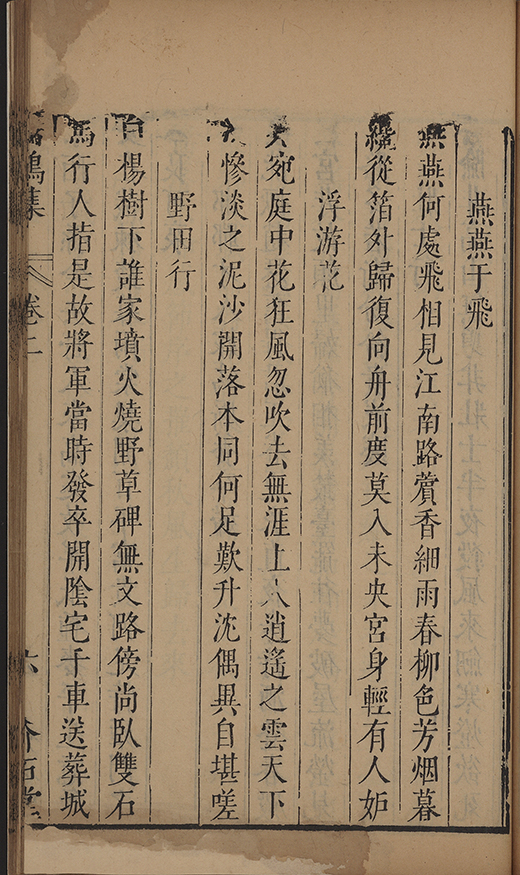 燕燕于飛
燕燕何處飛相見江南路蘅香細雨春柳色芳烟暮
纔從箔外歸復向舟前度莫入未央宮身輕有人妒
浮游花
宛庭中花狂風忽吹去無涯上入逍遙之雲天下
慘淡之泥沙開落本同何足歎升沈偶異自堪嗟
野田行
白楊樹下誰家墳火燒野草碑無文路傍尚臥雙石
馬行人指是故將軍當時發卒開陰宅千車送葬城
集 卷二 六 石堂